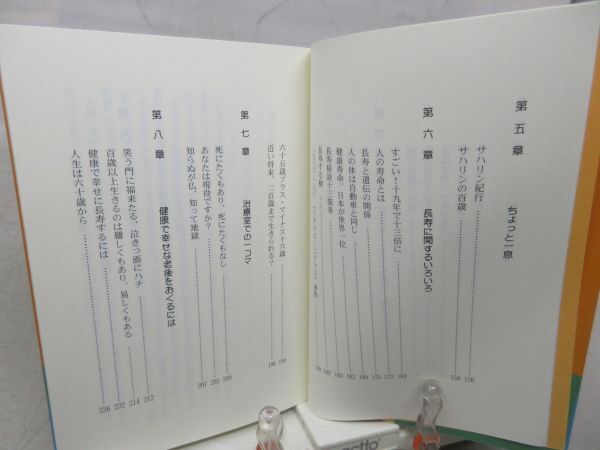 第五章 ちょっと一息
サハリン紀行 120
サハリンの百歳 150
第六章 長寿に関するいろいろ
すごい！十九年で十三倍に 164
人の寿命とは 172
長寿と遺伝の関係 176
人の体は自動車と同じ 180
健康寿命、日本が世界一位 182
長寿秘訣十三箇条
長寿する
六十五歳プラス・マイナス十六歳 194
近い将来、二百歳まで生きられる？ 196
第七章 治療室での一コマ
死にたくもあり、死にたくもなし 200
あなたは現役ですか？ 202
知らぬが仏、知って地獄 207
第八章 健康で幸せな老後をおくるには
笑う門に福来たる、泣きっ面にハチ 212
百歳以上生きるのは難しくもあり、易しくもある 214
健康で幸せに長寿するには 222
人生は六十歳から 226